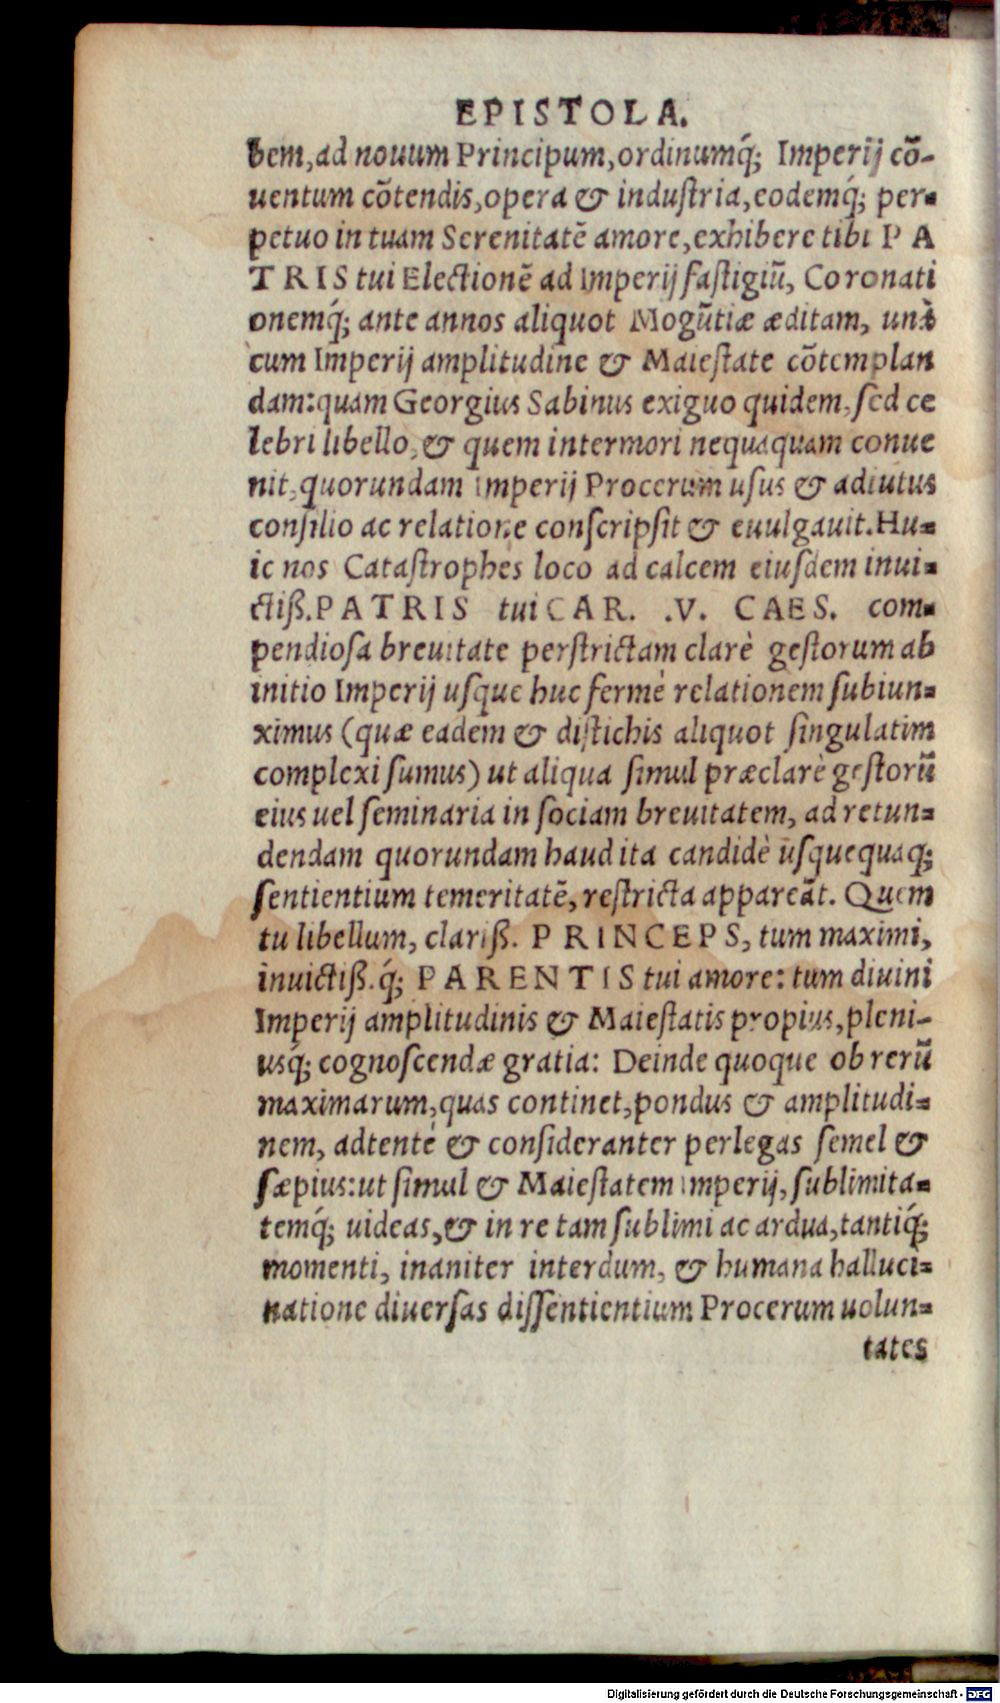 EPISTOLA.
bem,ad nouum Principum,ordinumq́; Imperij cō-
uentum cōtendis,opera & industria,eodemq́; per-
petuo in tuam Serenitatē amore,exhibere tibi P A
T R I S tui Electionē ad Imperij fastigiū, Coronati
onemq́; ante annos aliquot Mogūtiæ æditam, unà
cum Imperij amplitudine & Maiestate cōtemplan
dam:quam Georgius Sabinus exiguo quidem,sed ce
lebri libello,& quem intermori nequaquam conue
nit,quorundam Imperij Procerum usus & adiutus
consilio ac relatione conscripsit & euulgauit.Hu-
ic nos Catastrophes loco ad calcem eiusdem inui-
ctiß.P A T R I S tui C A R. .V. C A E S. com-
pendiosa breuitate perstrictam clarè gestorum ab
initio Imperij usque huc fermè relationem subiun-
ximus (quæ eadem & distichis aliquot singulatim
complexi sumus) ut aliqua simul præclarè gestorū
eius uel seminaria in sociam breuitatem, ad retun-
dendam quorundam haud ita candidè usquequaq;
sentientium temeritatē, restricta appareāt. Quem
tu libellum, clariß. P R I N C E P S, tum maximi,
inuictiß.q́; P A R E N T I S tui amore: tum diuini
Imperij amplitudinis & Maiestatis propius,pleni-
usq́; cognoscendæ gratia: Deinde quoque ob rerū
maximarum,quas continet,pondus & amplitudi-
nem, adtentè & consideranter perlegas semel &
sæpius:ut simul & Maiestatem Imperij, sublimita-
temq́; uideas,& in re tam sublimi ac ardua,tantiq́;
momenti, inaniter interdum, & humana halluci-
natione diuersas dissentientium Procerum uolun-
tates
Digitalisierung gefördert durch die Deutsche Forschungsgemeinschaft - DFG